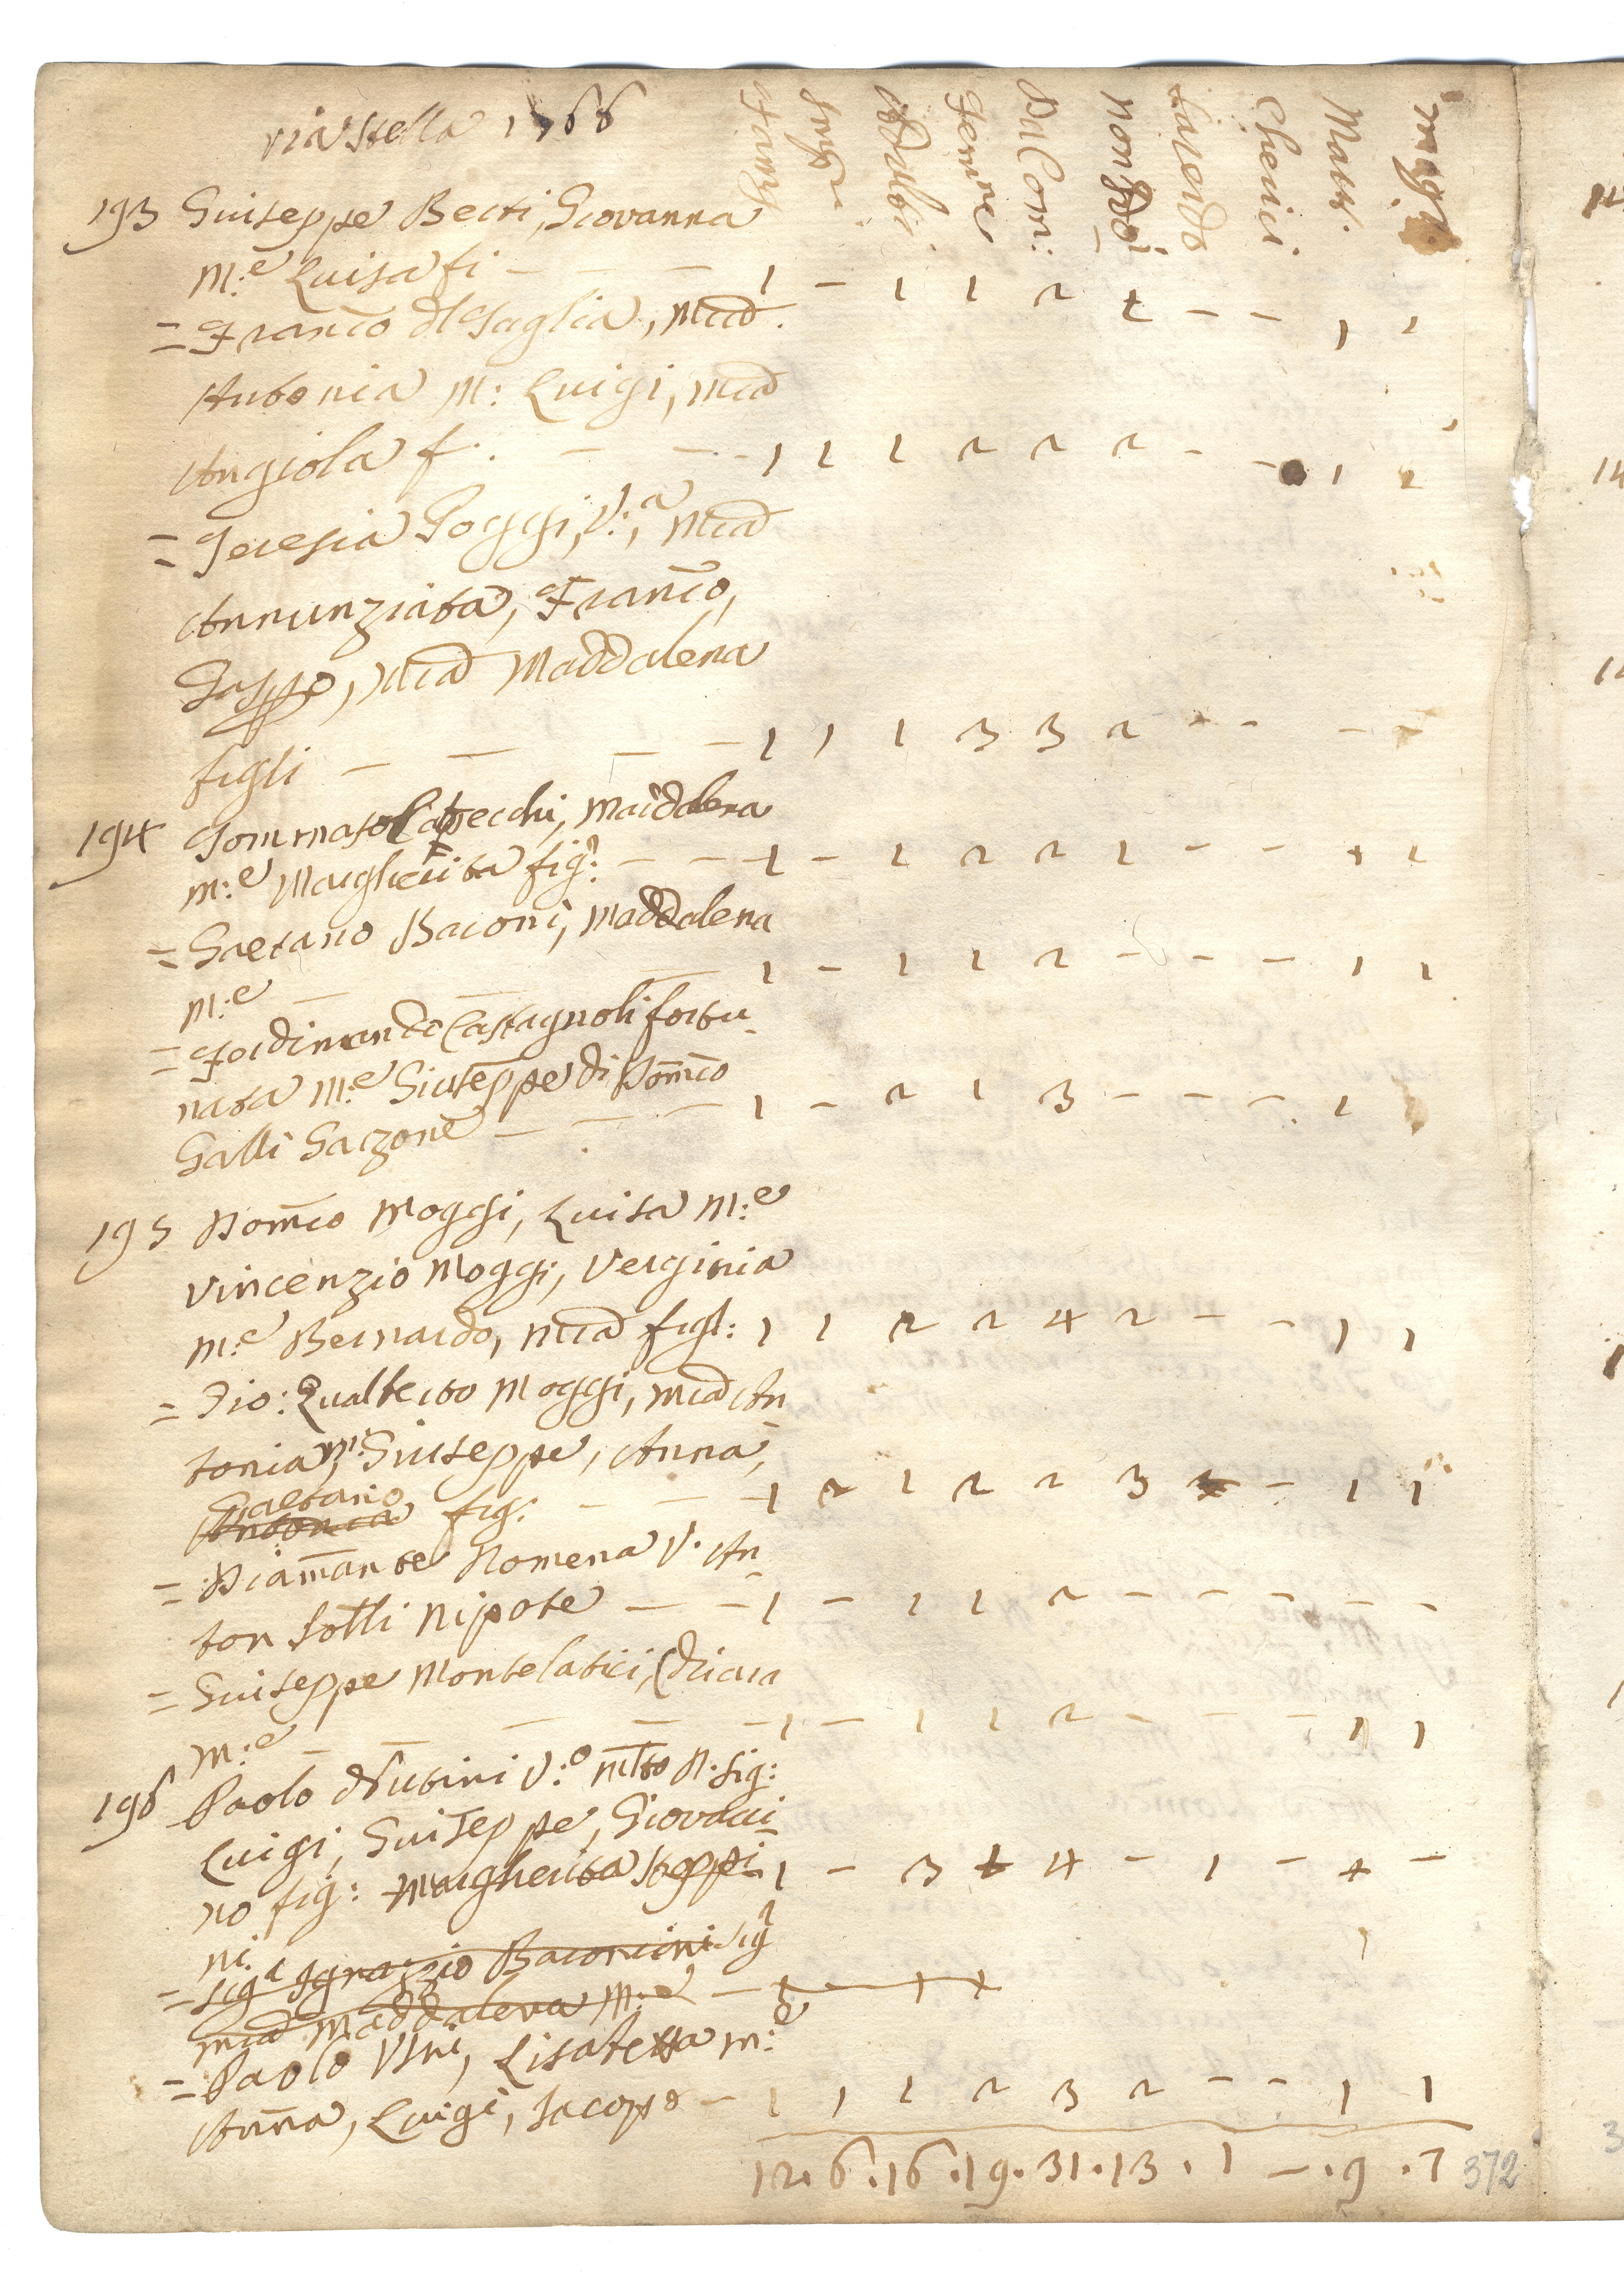 via Stella 1766
Famig. Fanci. Adulti Femine Da Com: Non da Co Sacerdo Cherici Mari. mog.
193 Giuseppe Berti, Giovanna
M:e Luisa fi - - - 1 - 1 1 2 1 - - 1 1
= Franco Af Saglia, Mad.
Antonia M: Luigi, Mad
Angiola f. - - - 1 1 1 2 2 2 - - 1 1
= Teresia Poggi, V:a, Mad
Annunziata, Franco,
Gasppo, Mad Maddalena
figli - - - - 1 1 1 3 3 2 - - - -
194 Tommaso Lapecchi, Maddalena
m:e Margherita fig: - - - 1 - 1 2 2 1 - - 1 1
= Gaetano Baroni, Maddalena
M:e - - - 1 - 1 1 2 - - - 1 1
= Ferdinando Castagnoli fortu
nata M:e Giuseppe di Domco
Galli Garzone - - - 1 - 2 1 3 - - - 1
195 Domco Moggi, Luisa M:e
Vincenzio Moggi, Verginia
M:e Bernardo, Mad figl: 1 1 2 2 4 2 - - 1 1
= Gio: Gualberto Moggi, Mad An
tonia, m: Giuseppe, Anna,
Gaetano
Antonia fig: - - - 1 2 1 2 2 3 - 1 1
= Diamante Romena V. An
ton Sotti Nipote - - 1 - 1 1 2 - - - - -
= Giuseppe Montelatici,
M:e - - - - - 1 - 1 1 2 - - - 1 1
196 Paolo V:o R. Sig:
Luigi, Giuseppe, Giovacci
no fig: Margherita 1 - 3 4 - 1 - -
ni.
= Sig Ignazzio Baroncini Sig
Mad Maddalena M:e -
= Paolo Usini, Lisabetta M:e
Anna, Luigi, Jacopo - 1 1 1 2 3 2 - - 1 1
12. 6. 16. 19. 31. 13. 1 -. 9. 7
372